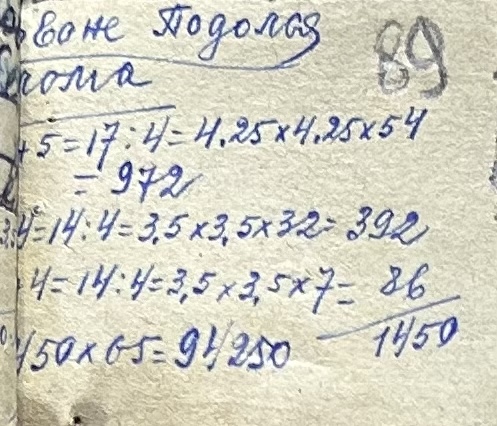 Боже Подолься
89
дома
+5=17:4=4.25×4.25×54
=972
3:4=14:4=3,5×3,5×32=392
+4=14:4=3,5×3,5×7=86
1450
1450×65=94250